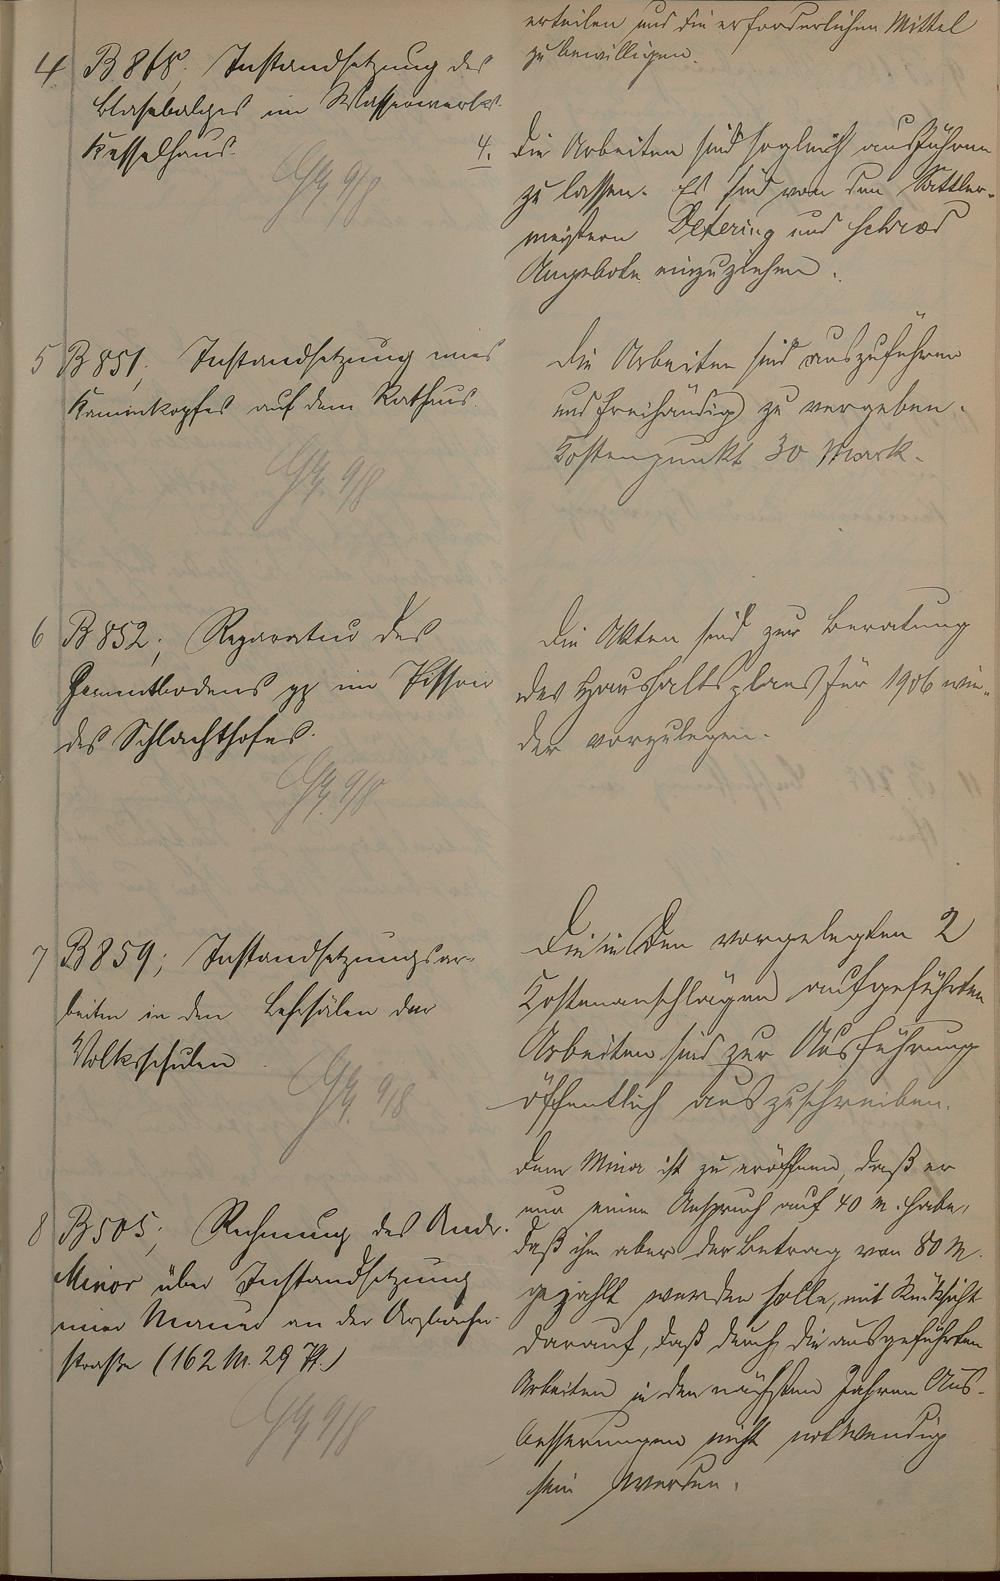 erteilen und die erforderlichen Mittel
zu bewilligen.
4 B 868. Instandsetzung des
Blasebalges im Wasserwerks-
Kesselhaus.
4. Die Arbeiten sind sogleich ausführen
zu lassen. Es sind von den Sattler-
meistern Detering und Schroed
Angebote einzuziehen.
5 B 851, Instandsetzung eines
Kaminkopfes auf dem Rathaus.
Die Arbeiten sind auszuführen
und freihändig zu vergeben.
Kostenpunkt 30 Mark.
6 B 852, Reparatur des
Zementbodens pp im Pissoir
des Schlachthofes.
Die Akten sind zur Beratung
des Haushaltsplans für 1906 wie-
der vorzulegen.
7 B 859; Instandsetzungsar-
beiten in den Lehrsälen der
Volksschulen
Die in den vorgelegten 2
Kostenanschlägen aufgeführten
Arbeiten sind zur Ausführung
öffentlich auszuschreiben.
8 B 505, Rechnung des Andr.
Minor über Instandsetzung
einer Mauer an der Arzbacher-
straße (162 M. 29 Pf.)
Dem Minor ist zu eröffnen, daß er
nur einen Anspruch auf 40 M. habe,
daß ihm aber der Betrag von 80 M.
gezahlt werden solle, mit Rücksicht
darauf, daß durch die ausgeführten
Arbeiten in den nächsten Jahren Aus-
besserungen nicht notwendig
sein werden.